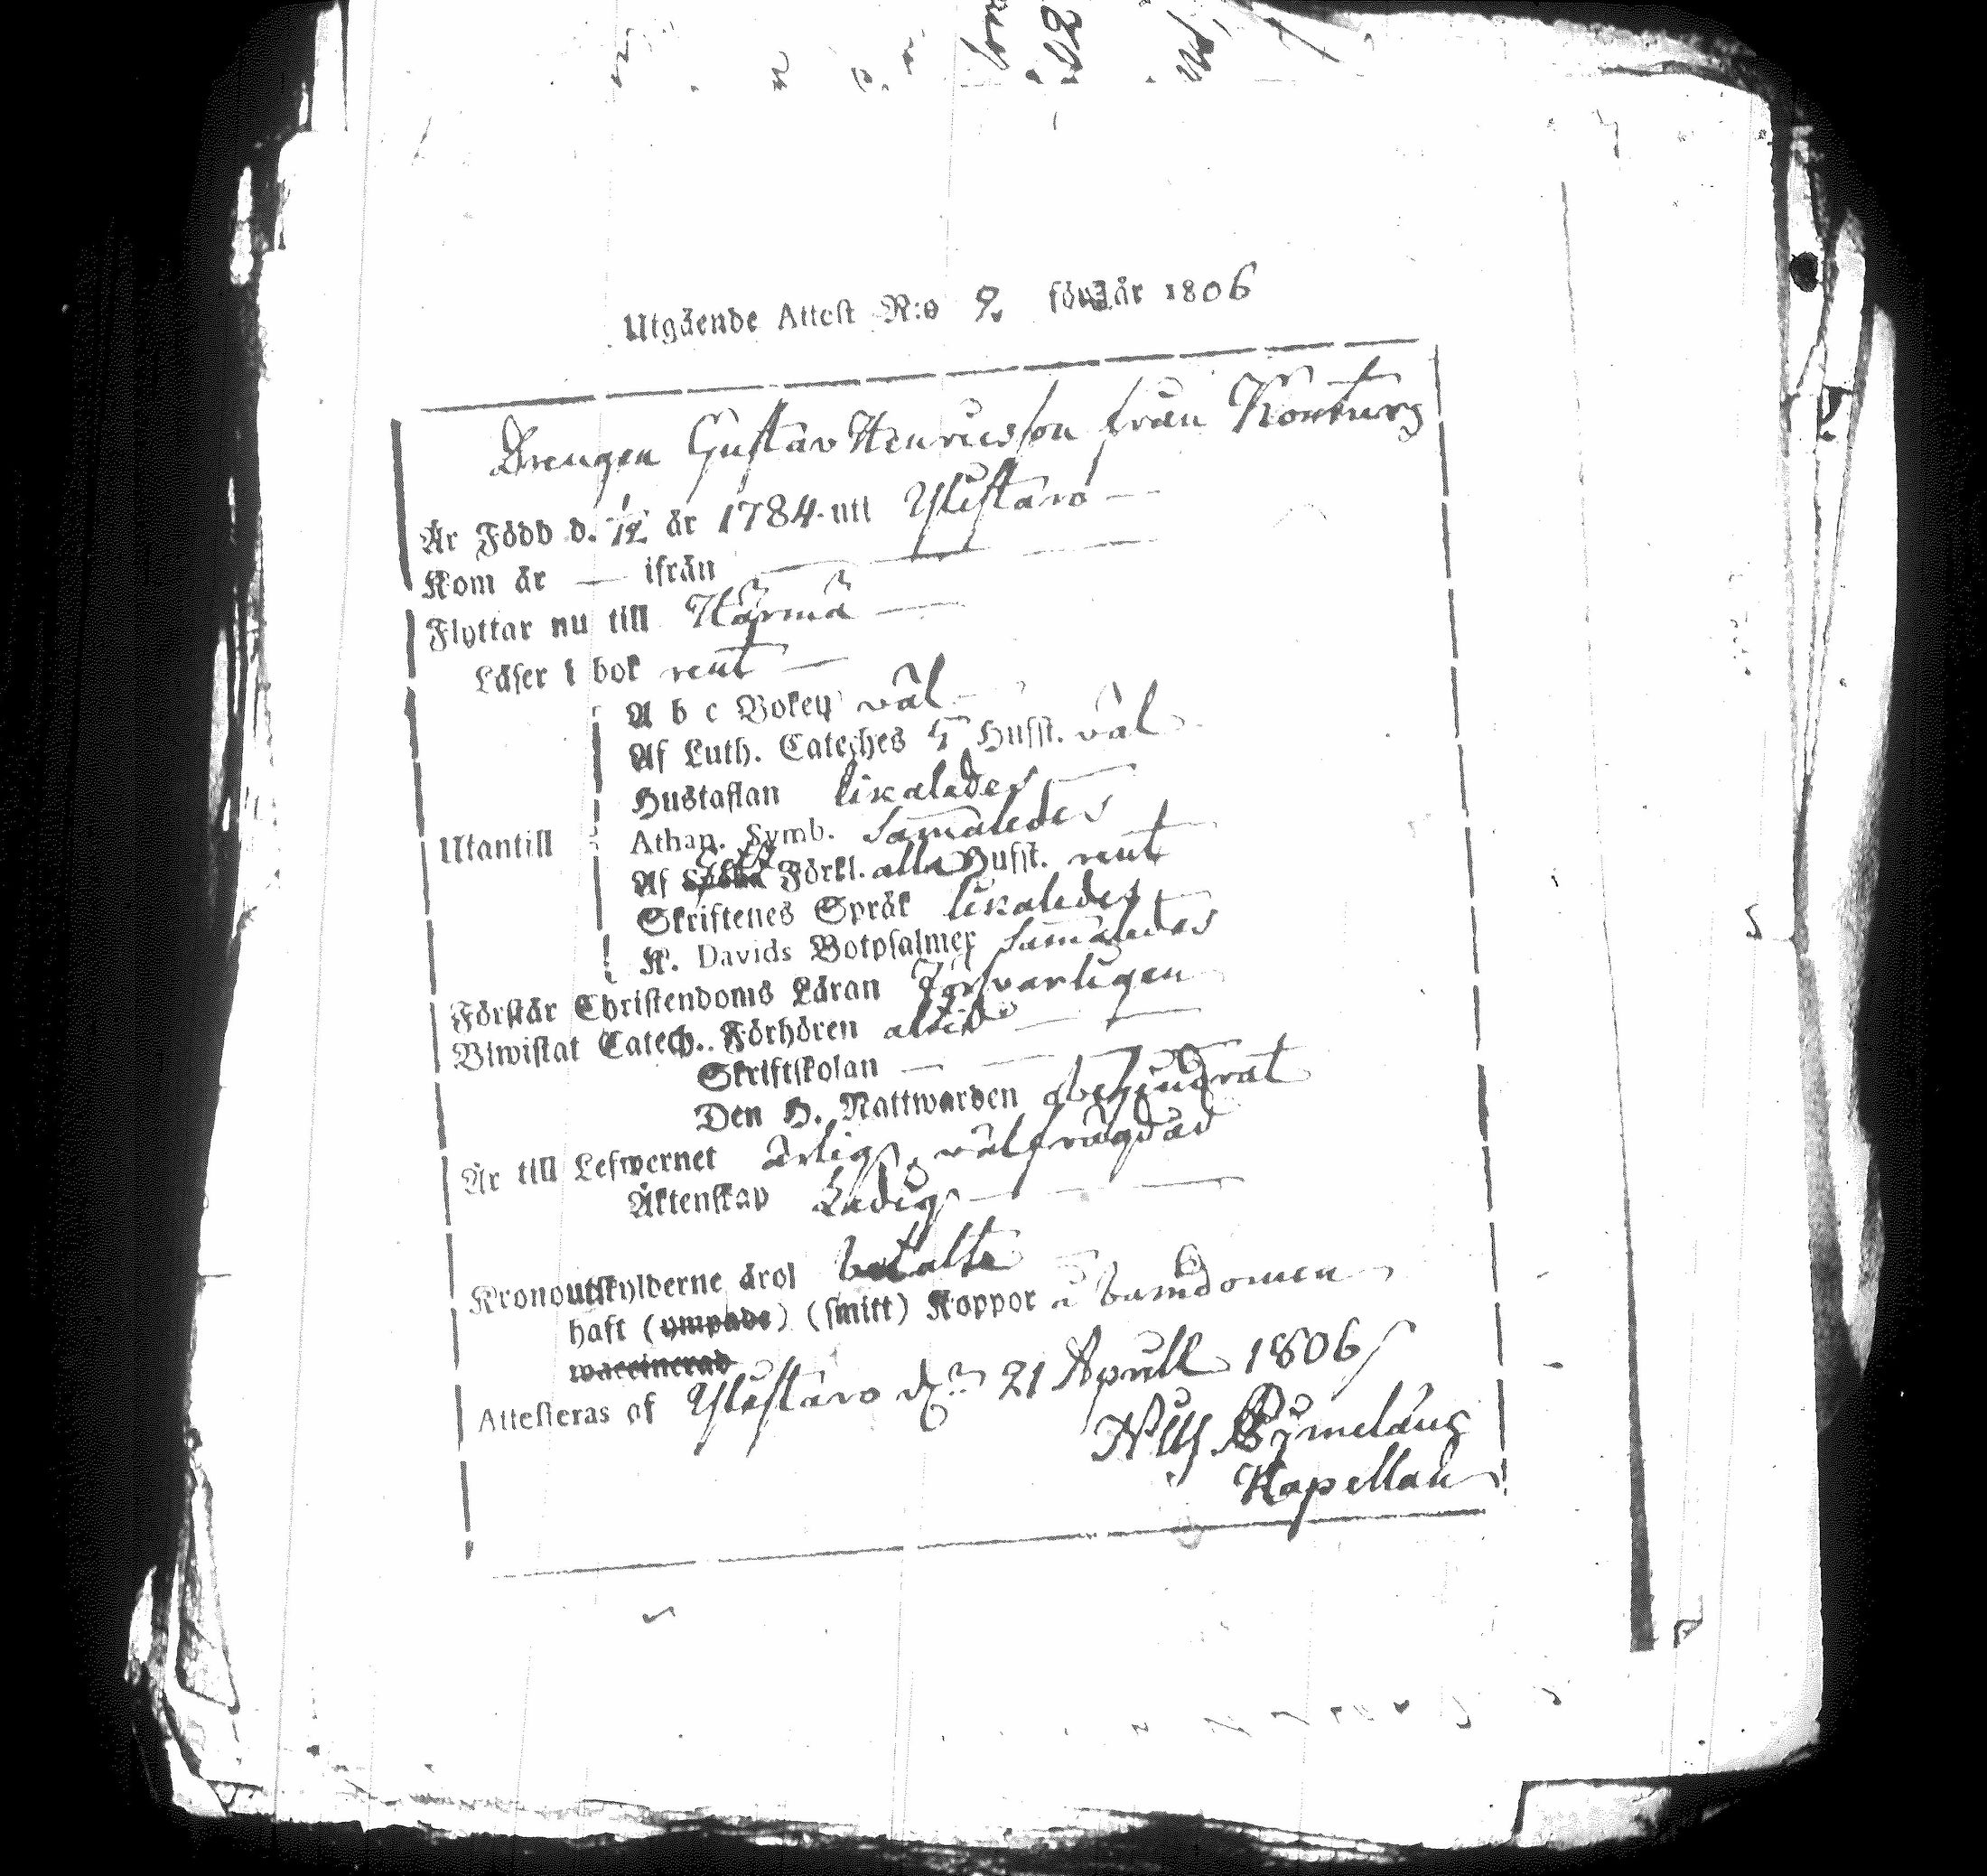 Utgående Attest N:o 9. för år 1806
Drengen Gustav Henricsson från Kontturg
Är Född d. 1/12 år 1784. uti Ylistaro —
Kom år — ifrån —
Flyttar nu till Härmä —
Läser i bok rent —
A b c Boken väl —
Af Luth. Cateches 5 Hufst. väl
Hustaflan likaledes
Utantill Athan. Symb. Samaledes
Af Förkl. alla Hufst. rent
Skriftenes Språk likaledes
K. Davids Botpsalmer samaledes
Förstår Christendoms Läran Försvarligen
Biwistat Catech. Förhören altid —
Skriftskolan — —
Den H. Nattwarden obehindrat
Är till Lefwernet ärlig, välfrägdad
Äktenskap Ledig —
Kronoutskylderne äro betalte
haft (ympade) (smitt) Koppor i barndomen
waccinerad
Attesteras af Ylistaro d. 21 Aprill 1806
Kapellan